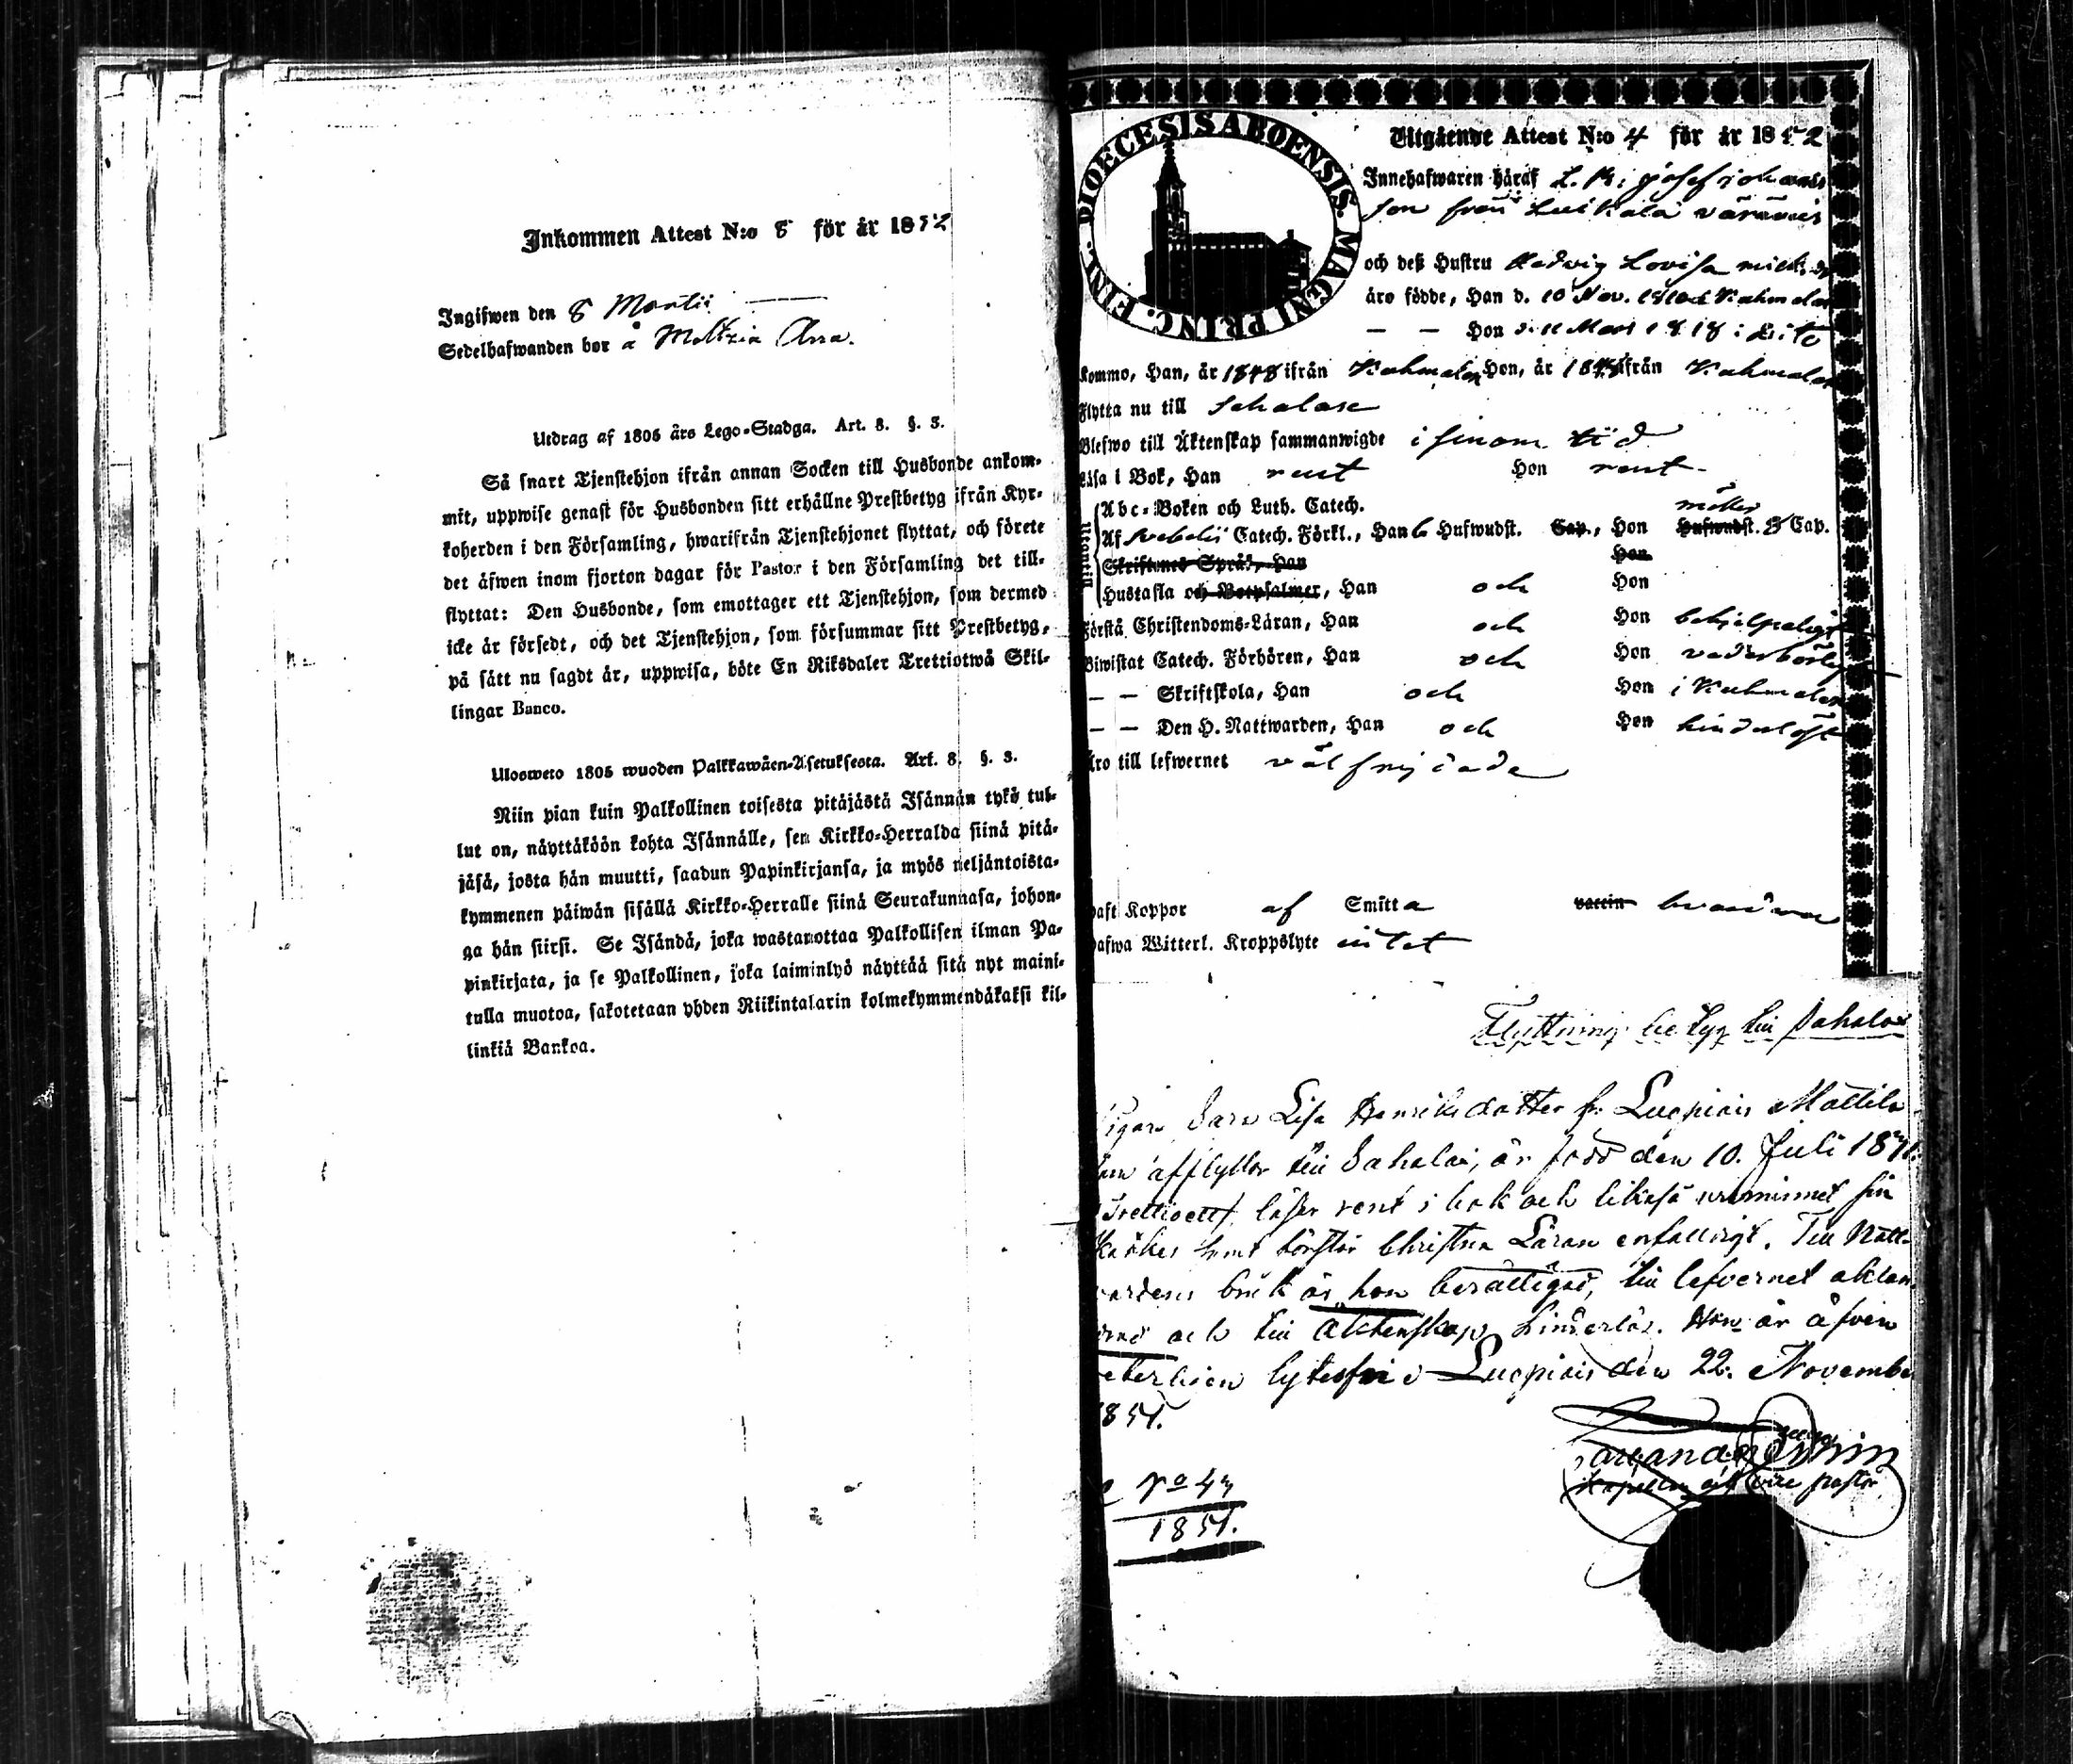 Inkommen Attest N:o 8 för år 1852
Ingifwen den 8 Martii
Sedelhafwanden bor å
Utdrag af 1805 års Lego-Stadga. Art. 8. §. 3.
Så snart Tjenstehjon ifrån annan Socken till Husbonde ankom-
mit, uppwise genast för Husbonden sitt erhållne Prestbetyg ifrån Kyr-
koherden i den Församling, hwarifrån Tjenstehjonet flyttat, och förete
det äfwen inom fjorton dagar för Pastor i den Församling det till-
flyttat: Den Husbonde, som emottager ett Tjenstehjon, som dermed
icke är försedt, och det Tjenstehjon, som försummar sitt Prestbetyg,
på sätt nu sagdt är, uppwisa, böte En Riksdaler Trettiotwå Skil-
lingar Banco.
Ulosweto 1805 wuoden Palkkawäen-Asetuksesta. Art. 8. §. 3.
Niin pian kuin Palkollinen toisesta pitäjästä Isännän tykö tul-
lut on, näyttäköön kohta Isännälle, sen Kirkko-Herralda siinä pitä-
jäsä, josta hän muutti, saadun Papinkirjansa, ja myös neljäntoista-
kymmenen päiwän sisällä Kirkko-Herralle siinä Seurakunnasa, johon-
ga hän siirsi. Se Isändä, joka wastanottaa Palkollisen ilman Pa-
pinkirjata, ja se Palkollinen, joka laiminlyö näyttää sitä nyt maini-
tulla muotoa, sakotetaan yhden Riikintalarin kolmekymmendäkaksi kil-
linkiä Bankoa.
DIOECESIS ABOENSIS. MAGNI PRINC. FINL.
Utgående Attest N:o 4 för år 1852
Innehafwaren häraf Josef Johans
son från
och deß Hustru Hedvig Lovisa
äro födde, Han d. 10 Nov. 1810 i Kuhmalax
— — Hon d. 11 Mars 1818 i
kommo, Han, år 1848 ifrån Kuhmalax Hon, år ifrån Kuhmalax
Flytta nu till Sahalax
Blefwo till Äktenskap sammanwigde i sinom tid
Läsa i Bok, Han rent Hon rent
Abc-Boken och Luth. Catech.
Af Svebelii Catech. Förkl., Han 6 Hufwudst. Cap., Hon Hufwudst. 3 Cap.
Skriftenes Språk, Han Hon
Hustafla och Botpsalmer, Han och Hon
Förstå Christendoms-Läran, Han och Hon behjelpeligt
Biwistat Catech. Förhören, Han och Hon vederbörlig
— — Skriftskola, Han och Hon i Kuhmalax
— — Den H. Nattwarden, Han och Hon hinderlöst
Äro till lefwernet välfrejdade
haft Koppor af Smitta vaccin
hafwa Witterl. Kroppslyte intet
Flyttnings betyg till Sahalax
Pigan Sara Lisa Henriksdotter fr. Luopiois Mattila
som afflyttar till Sahalax, är född den 10. Juli
Trettioett, läser rent i bok och likaså utur minnet sin
samt förstår Christna Läran enfaldigt. Till Natt-
vardens bruk är hon berättigad, till lefvernet
och till äktenskap hinderlös. Hon är äfven
lytesfri. Luopiois den 22. November
1851.
1851.
Kapellan och vice pastor